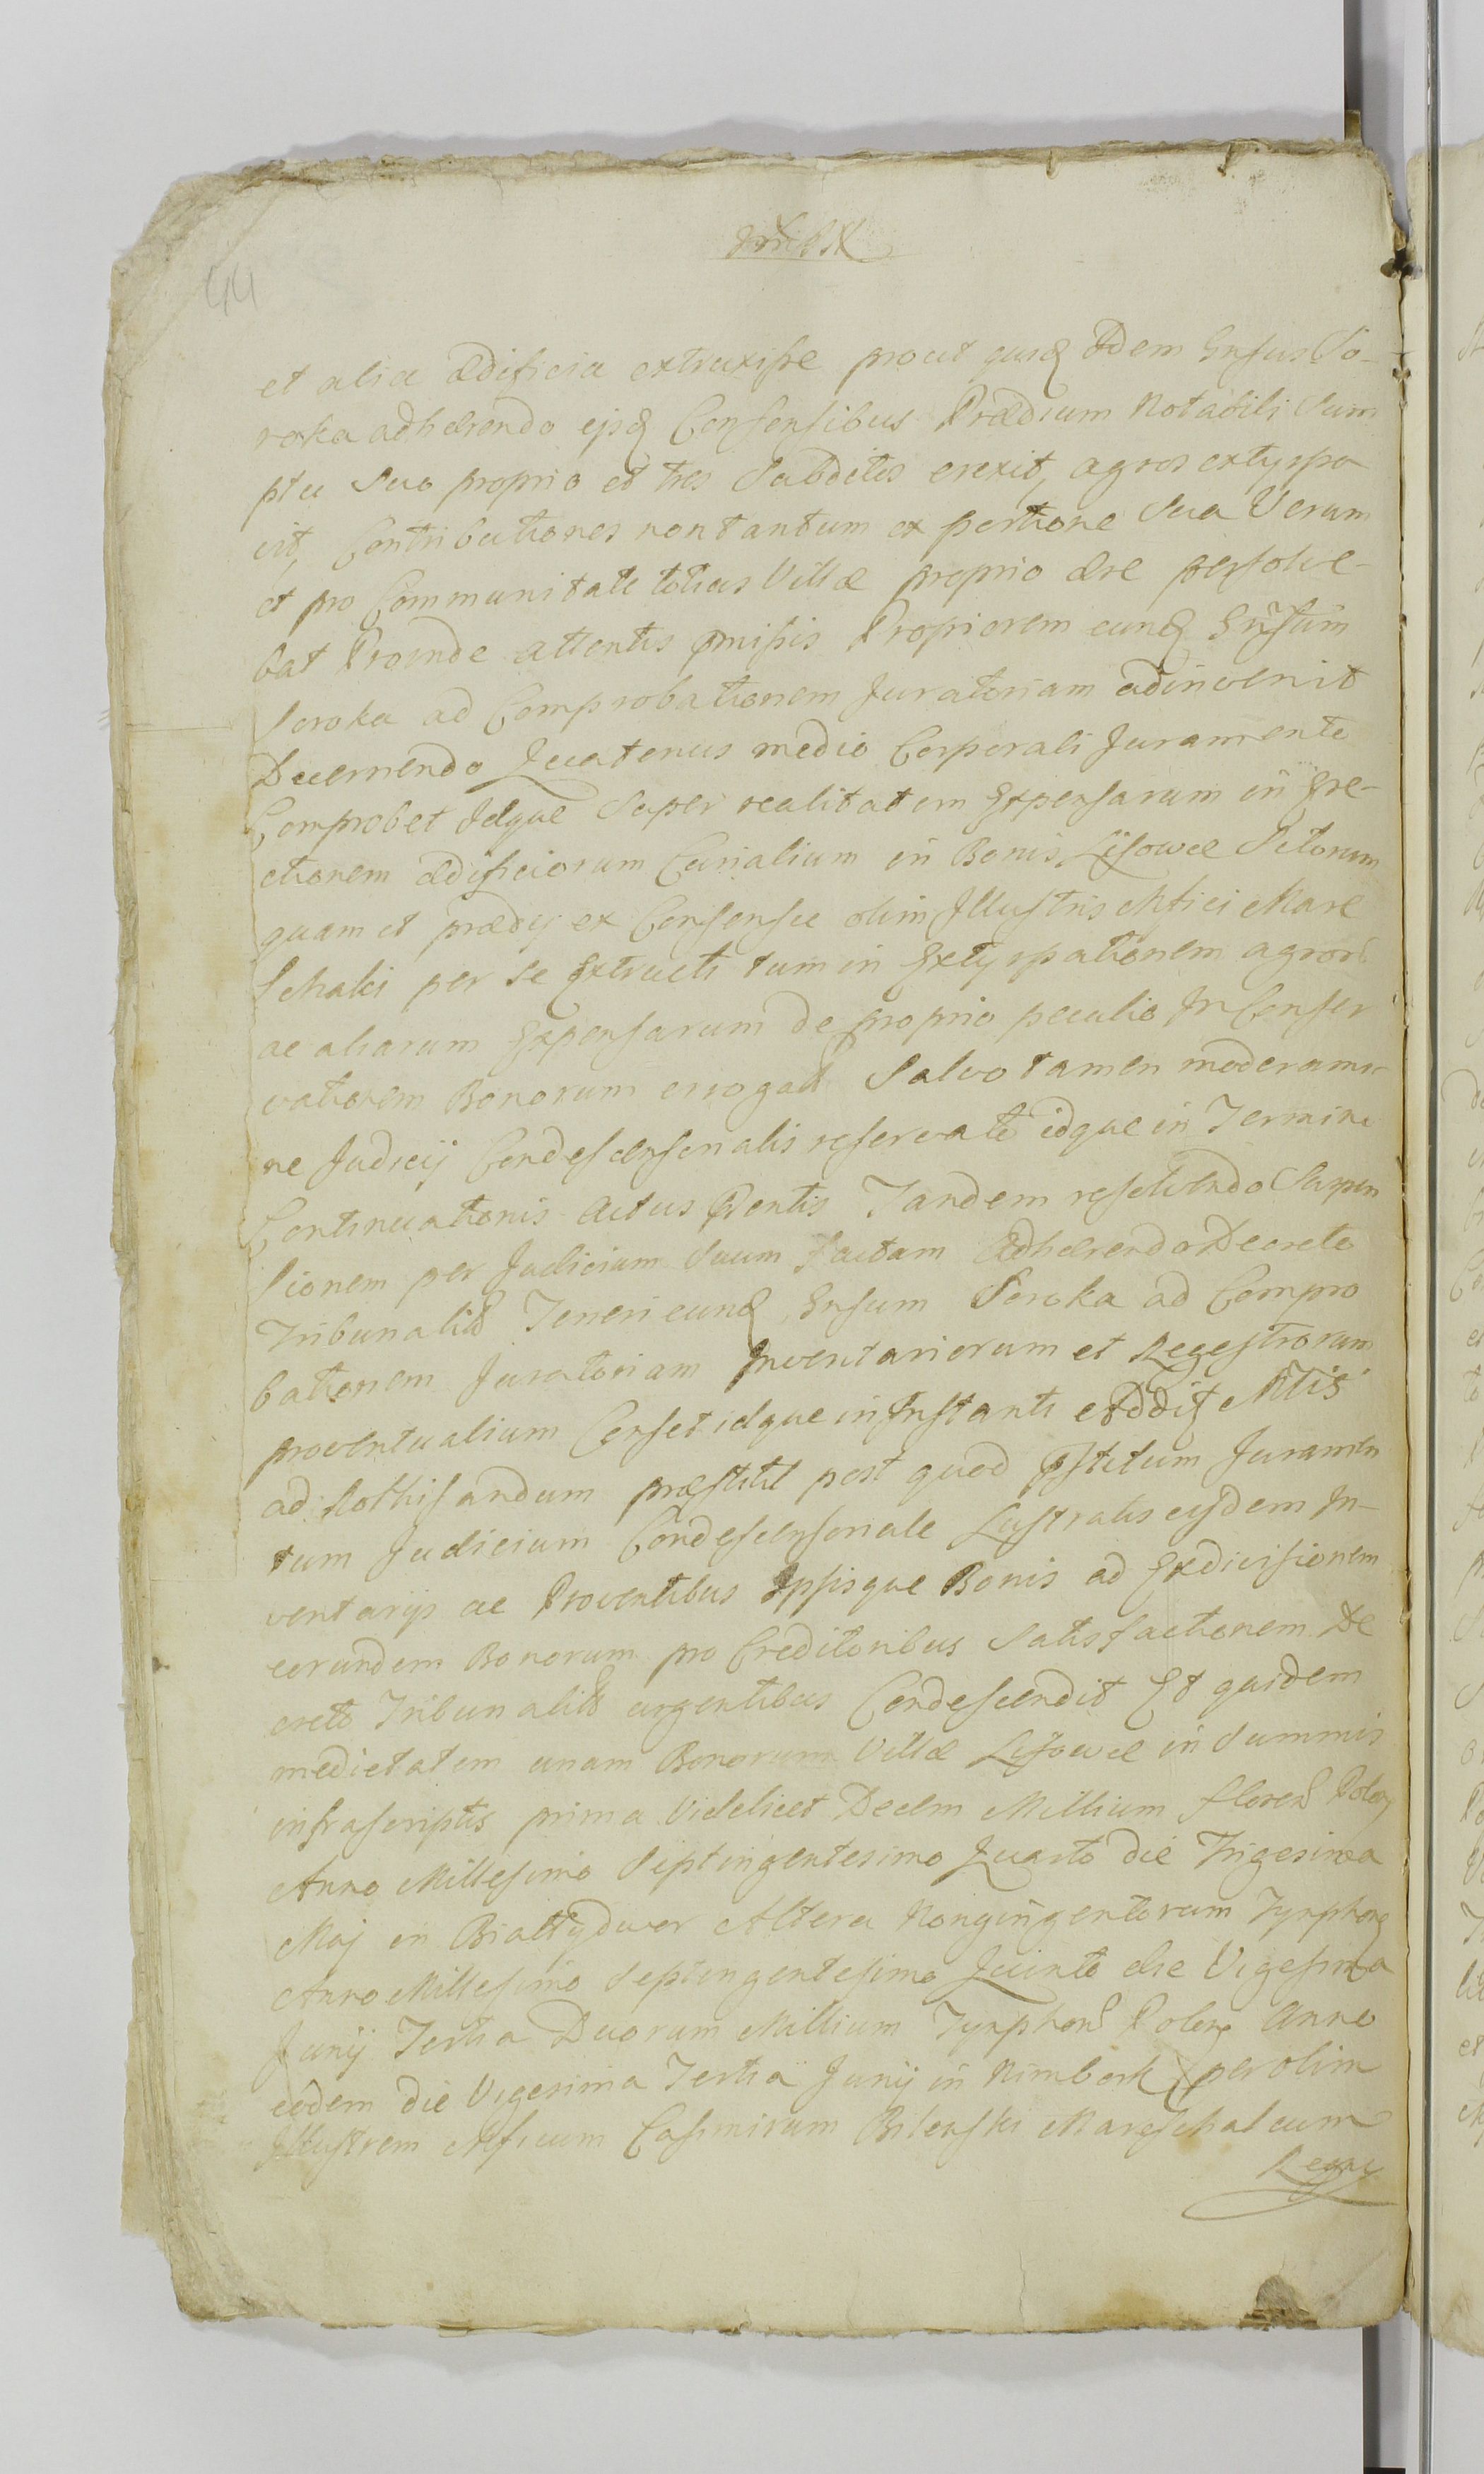 44
et alia ædificia extruxisse prout quidem idem Gnsus So-
roka adhærendo ejsq Consensibus Prædium Notabili Sum
ptu Suo proprio et tres Subditos erexit, agros extyrpa
vit, Contributiones non tantum ex portione Sua Verum
et pro Communitate totius Villæ proprio ære persolve-
bat Proinde attentis pmissis Propriorem eunq Gnsum
Soroka ad Comprobationem Juratoriam adinvenit
Decernendo Quatenus medio Corporali Juramento
Comprobet Idque Super realitatem Expensarum in Ere-
ctionem ædificiorum Curialium in Bonis Lisowce Sitorum
quam et prædij ex Consensu olim Illustris Mfici Mare
Schalci per se Extructi tum in Extyrpationem agror
ac aliarum Expensarum de proprio peculio In Conser
vationem Bonorum erogat Salvo tamen moderami-
ne Judicij Condescensorialis reservato idque in Termino
Continuationis Actus Pntis Tandem resolvendo Suspen
Sionem per Judicium Suum factam Adhærendo Decreto
Tribunalit Teneri eunq Gnsum Soroka ad Compro
bationem Juratoriam Inventariorum et Regestrorum
proventualium Censet idque in Instanti
ad Rothisandum præstitit post quod pstitum Juramen
tum Judicium Condescensoriale Lustratis eisdem In-
ventarijs ac Proventibus Ipsisque Bonis ad Exdivisionem
eorundem Bonorum pro Creditoribus Satisfactionem De
creto Tribunalit urgentibus Condescendit Et quidem
medietatem unam Bonorum Villæ Lisowce in Summis
infrascriptis prima Videlicet Decem Millium floren Polon
Anno Millesimo Septingentesimo Quarto die Trigesima
Maj in Altera Nongingentorum Tynphon
Anno Millesimo Septingentesimo Quinto die Vigesima
Junij Tertia Duorum Millium Tynphon Polon Anno
eodem die Vigesima Tertia Junij in Nimbork per olim
Illustrem Mficum Casimirum Bilenski Mareschalcum
Regni